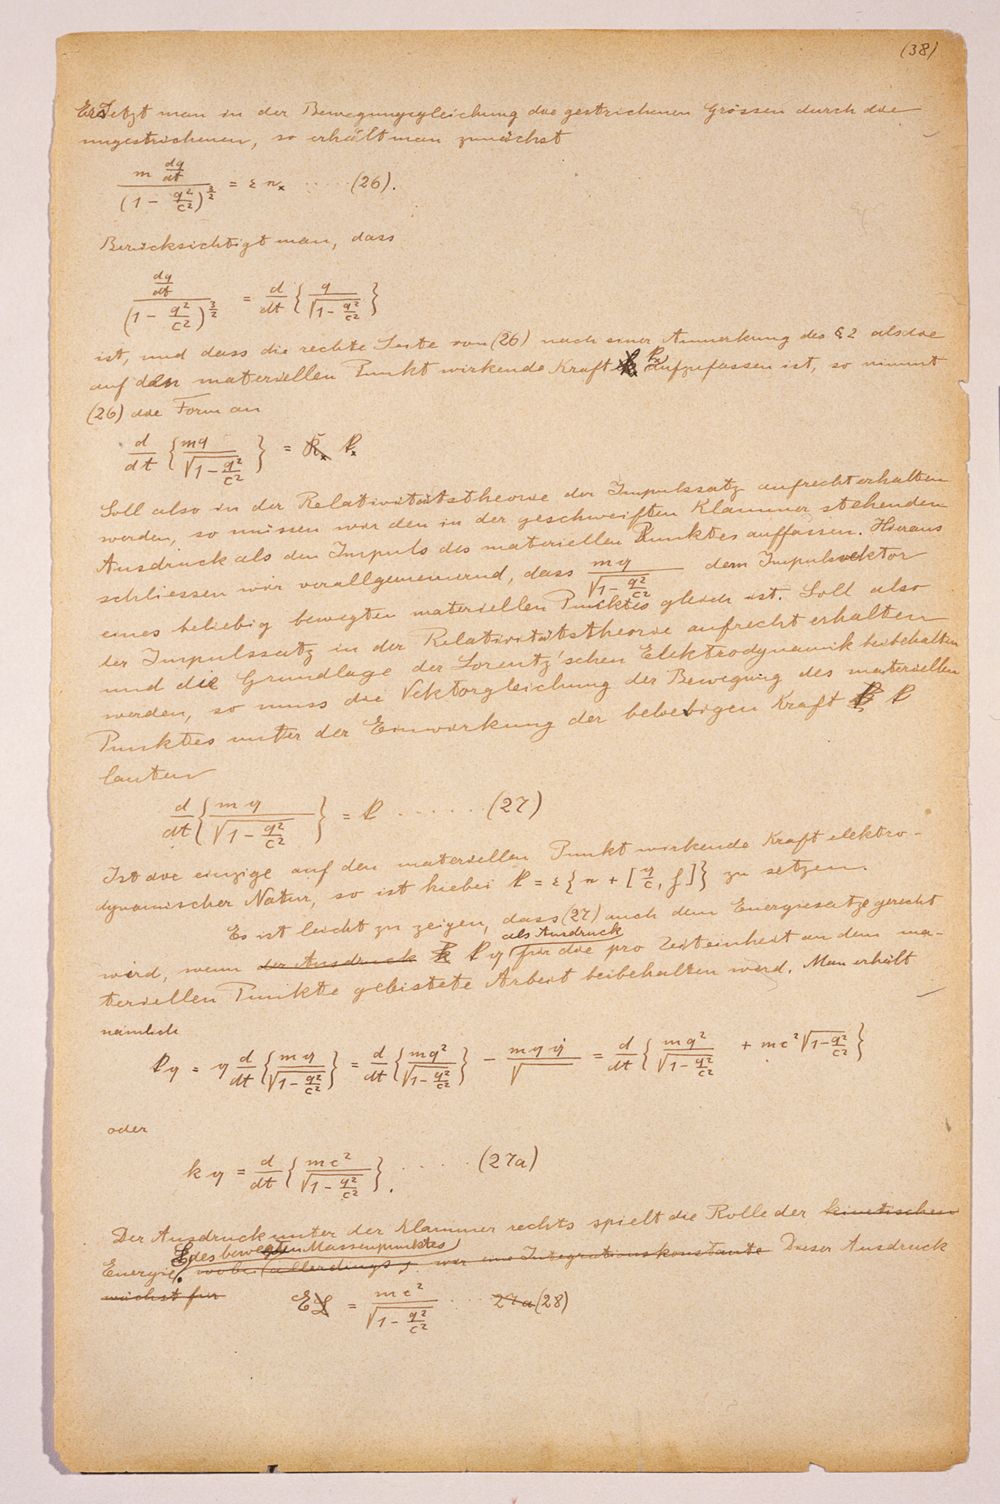 (38)
Ersetzt man in der Bewegungsgleichung die gestrichenen Grössen durch die
ungestrichenen, so erhält man zunächst
m dq/dt / (1 - q²/c²)^(3/2) = ε n_x ..... (26).
Berücksichtigt man, dass
dq/dt / (1 - q²/c²)^(3/2) = d/dt { q / √(1 - q²/c²) }
ist, und dass die rechte Seite von (26) nach einer Anmerkung des § 2 als die
auf den materiellen Punkt wirkende Kraft k_x aufzufassen ist, so nimmt
(26) die Form an
d/dt { mq / √(1 - q²/c²) } = k_x
Soll also in der Relativitätstheorie der Impulssatz aufrecht erhalten
werden, so müssen wir den in der geschweiften Klammer stehenden
Ausdruck als den Impuls des materiellen Punktes auffassen. Hieraus
schliessen wir verallgemeinernd, dass mq / √(1 - q²/c²) dem Impulsvektor
eines beliebig bewegten materiellen Punktes gleich ist. Soll also
der Impulssatz in der Relativitätstheorie aufrecht erhalten
und die Grundlage der Lorentz'schen Elektrodynamik beibehalten
werden, so muss die Vektorgleichung der Bewegung des materiellen
Punktes unter der Einwirkung der beliebigen Kraft k
lauten
d/dt { m q / √(1 - q²/c²) } = k ...... (27)
Ist die einzige auf den materiellen Punkt wirkende Kraft elektro-
dynamischer Natur, so ist hiebei k = ε { n + [q/c, f] } zu setzen.
Es ist leicht zu zeigen, dass (27) auch dem Energiesatze gerecht
wird, wenn der Ausdruck k q als Ausdruck für die pro Zeiteinheit an dem ma-
teriellen Punkte geleistete Arbeit beibehalten wird. Man erhält
nämlich
k q = q d/dt { m q / √(1 - q²/c²) } = d/dt { mq² / √(1 - q²/c²) } - m q q̇ / √ = d/dt { mq² / √(1 - q²/c²) + mc² √(1 - q²/c²) }
oder
k q = d/dt { mc² / √(1 - q²/c²) }. ..... (27a)
Der Ausdruck unter der Klammer rechts spielt die Rolle der kinetischen
Energie E des bewegten Massenpunktes. wobei (allerdings) wir eine Integrationskonstante Dieser Ausdruck
wächst für
E L = mc² / √(1 - q²/c²) ... 27a (28)